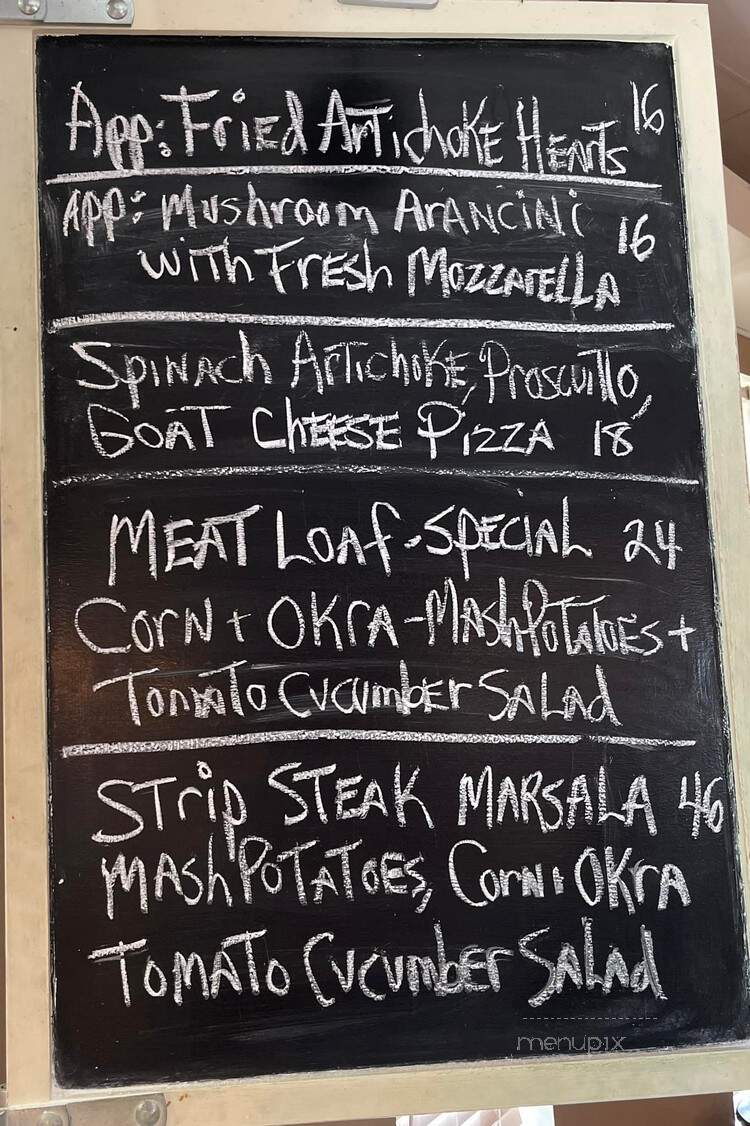 App: Fried Artichoke Hearts 16
App: Mushroom Arancini
with Fresh Mozzarella 16
Spinach Artichoke, Proscuitto,
Goat Cheese Pizza 18
Meat Loaf - Special 24
Corn + Okra - Mash Potatoes +
Tomato Cucumber Salad
Strip Steak Marsala 46
Mash Potatoes, Corn + Okra
Tomato Cucumber Salad
menupix